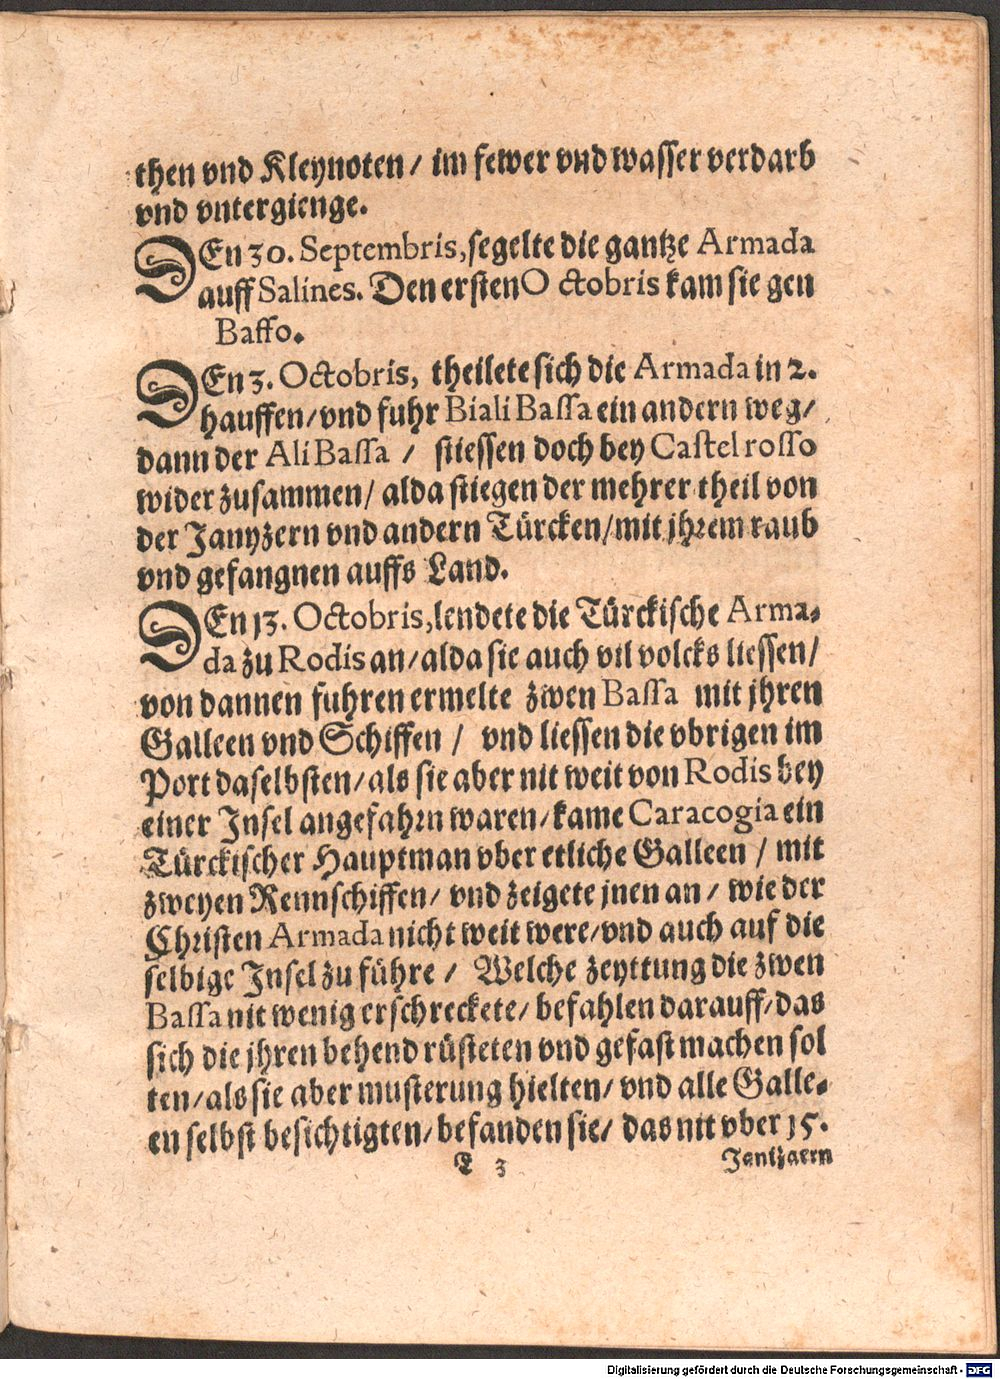 then vnd Kleynoten/ im fewer vnd wasser verdarb
vnd vntergienge.
DEn 30. Septembris, segelte die gantze Armada
auff Salines. Den ersten Octobris kam sie gen
Baffo.
DEn 3. Octobris, theilete sich die Armada in 2.
hauffen/ vnd fuhr Biali Bassa ein andern weg/
dann der Ali Bassa / stiessen doch bey Castel rosso
wider zusammen/ alda stiegen der mehrer theil von
der Janyzern vnd andern Türcken/ mit jhrem raub
vnd gefangnen auffs Land.
DEn 13. Octobris, lendete die Türckische Arma-
da zu Rodis an/ alda sie auch vil volcks liessen/
von dannen fuhren ermelte zwen Bassa mit jhren
Galleen vnd Schiffen / vnd liessen die vbrigen im
Port daselbsten/ als sie aber nit weit von Rodis bey
einer Insel angefahrn waren/ kame Caracogia ein
Türckischer Hauptman vber etliche Galleen / mit
zweyen Rennschiffen/ vnd zeigete jnen an/ wie der
Christen Armada nicht weit were/ vnd auch auf die
selbige Insel zu führe / Welche zeyttung die zwen
Bassa nit wenig erschreckete/ befahlen darauff/ das
sich die jhren behend rüsteten vnd gefast machen sol
ten/ als sie aber musterung hielten/ vnd alle Galle-
en selbst besichtigten/ befanden sie/ das nit vber 15.
T 3 Jantzaern
Digitalisierung gefördert durch die Deutsche Forschungsgemeinschaft - DFG